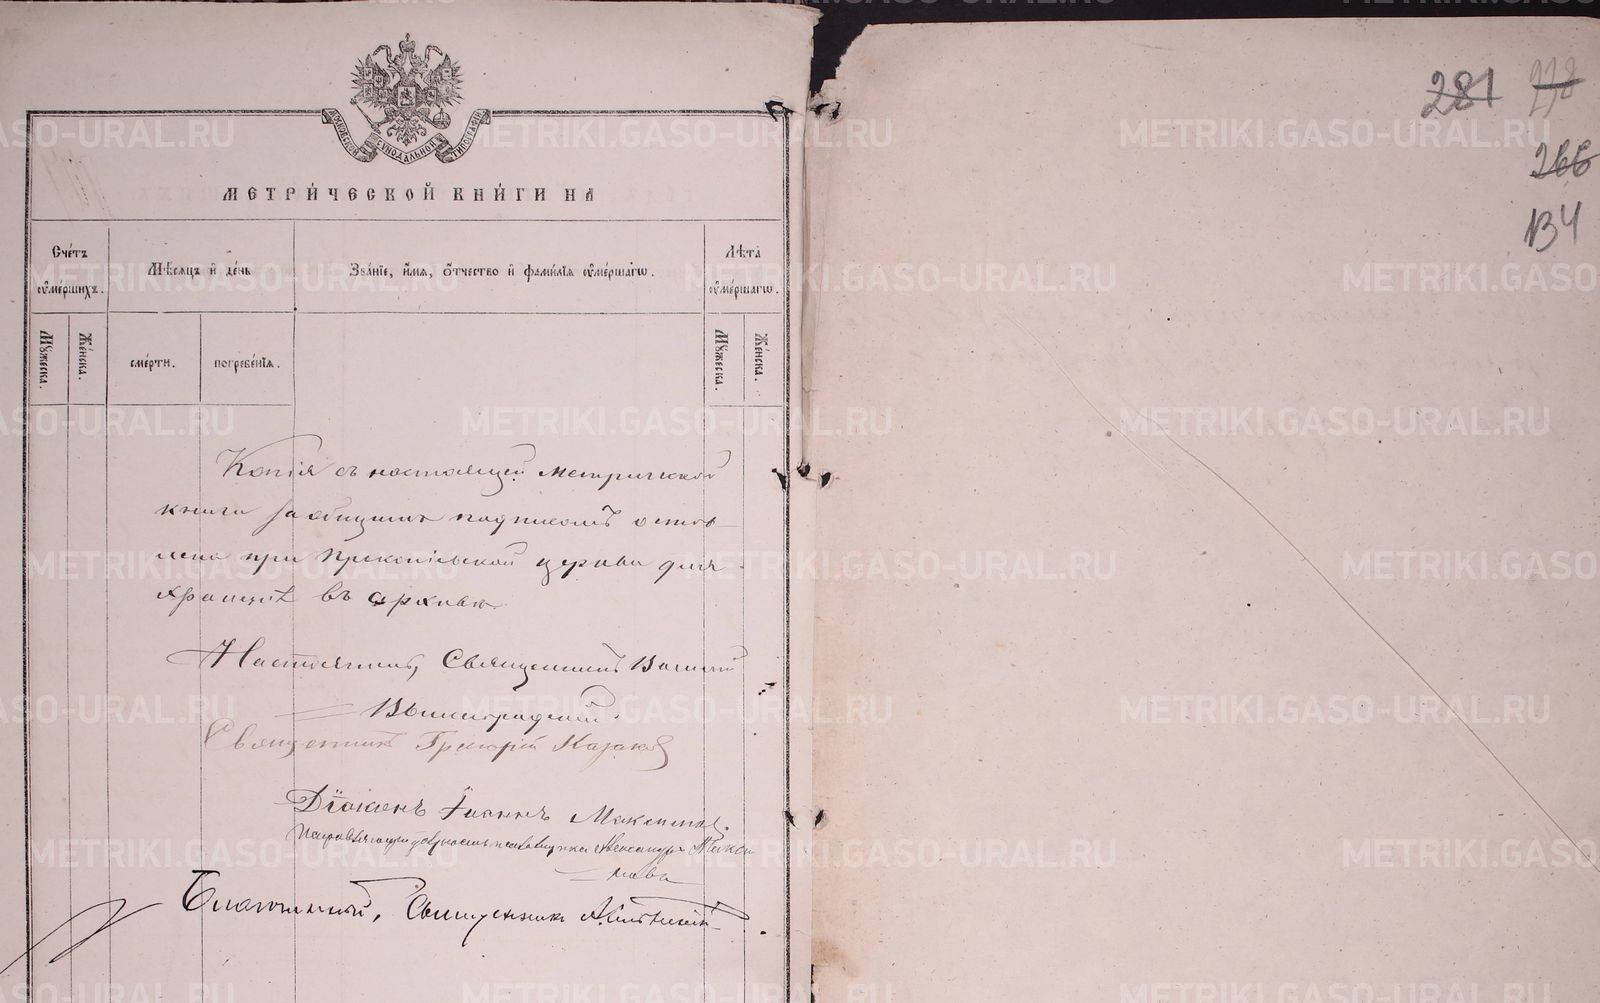 МОСКОВСКОЙ СѴНОДАЛЬНОЙ ТИПОГРАФІИ
МЕТРИ́ЧЕСКОЙ КНИ́ГИ НА
Сче́тъ ᲂумéршихъ.
Мѣ́сяцъ и҆ де́нь
Зва́нїе, и҆́мѧ, ѻ҆́тчество и҆ фами́лїѧ ᲂумéршагѡ.
Лѣ́та ᲂумéршагѡ.
Мꙋ́жеска.
Же́нска.
сме́рти.
погребе́нїѧ.
Мꙋ́жеска.
Же́нска.
Копія съ настоящей метрической
книги за общимъ подписомъ остав-
лена при Прокопіевской церкви для
храненія въ архивѣ.
Настоятель, Священникъ Василій
Виноградскій.
Священникъ Григорій Казаковъ
Діаконъ Іоаннъ Максимовъ.
Исправляющій должность псаломщика Александръ Макси
мовъ
Благочинный, Священникъ
281 278
266
134
METRIKI.GASO-URAL.RU